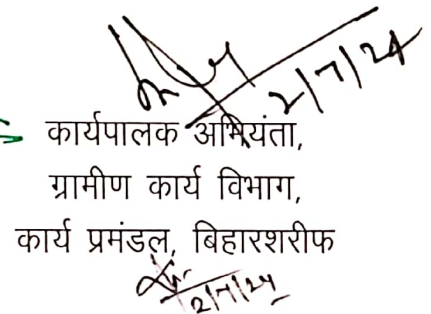 2/7/24
कार्यपालक अभियंता,
ग्रामीण कार्य विभाग,
कार्य प्रमंडल, बिहारशरीफ
2/7/24